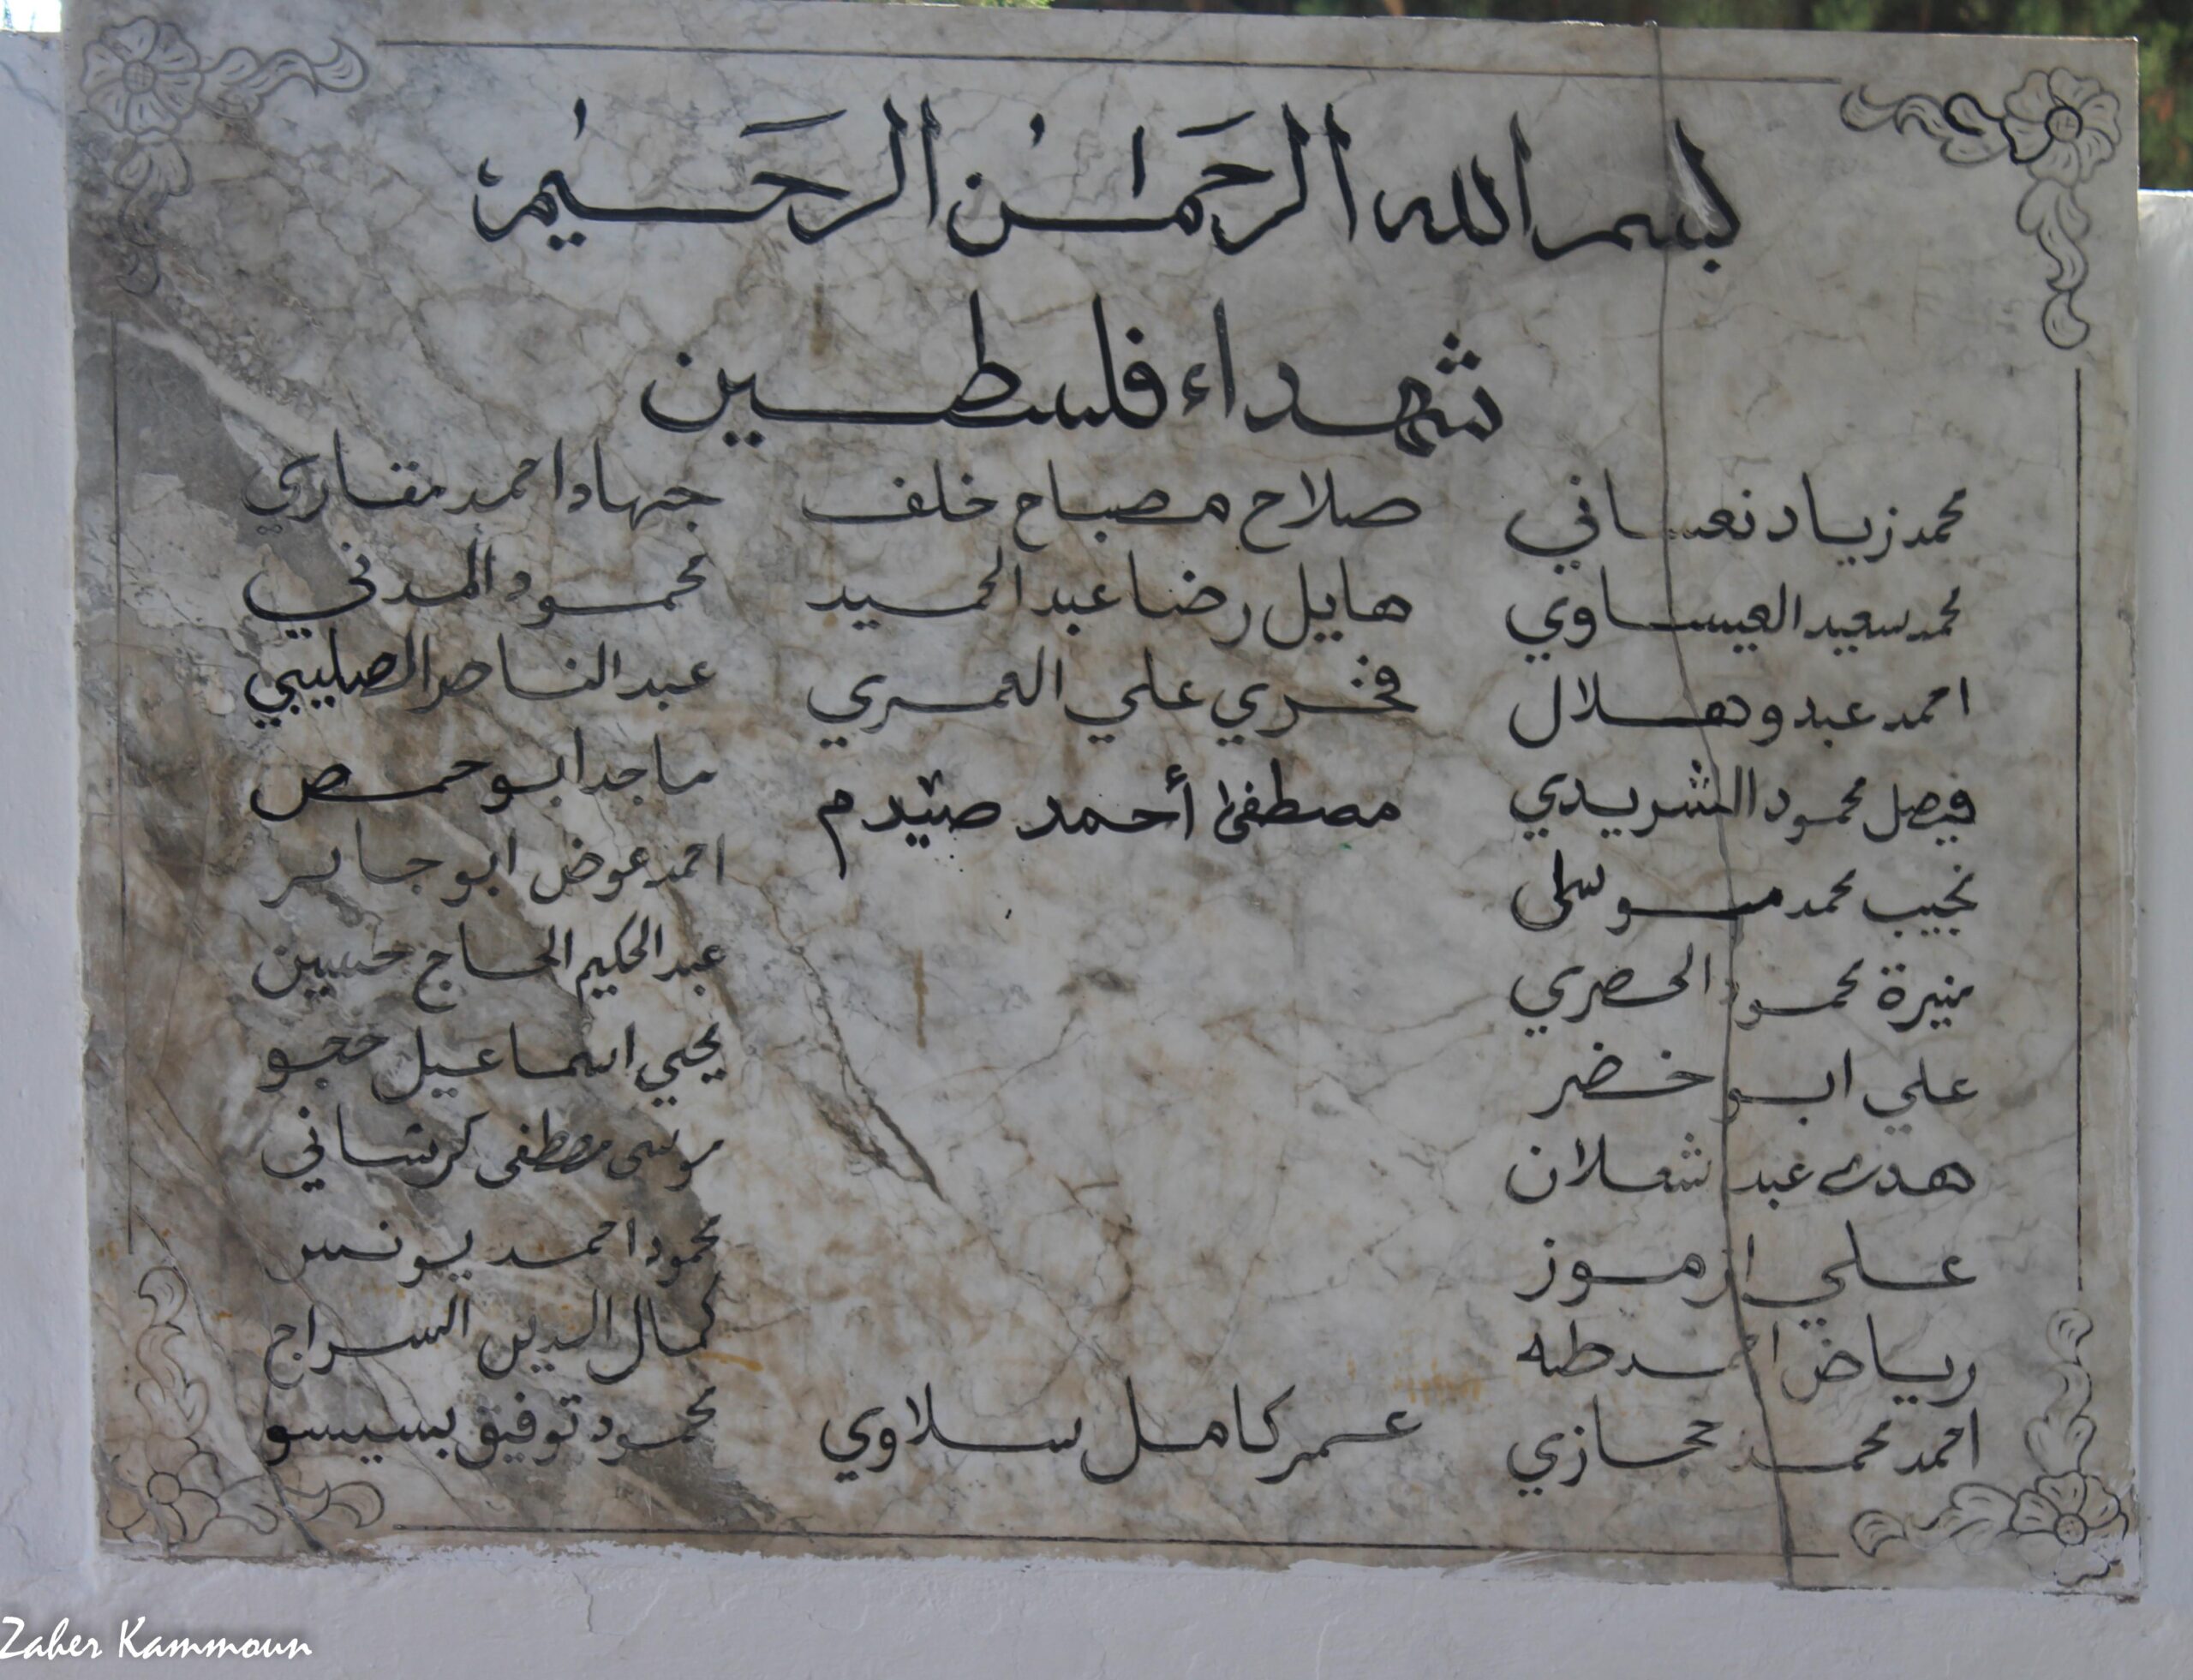 بسم الله الرحمن الرحيم
شهداء فلسطين
محمد زياد نعساني
محمد سعيد العيساوي
احمد عبدو هلال
فيصل محمود الشريدي
نجيب محمد موسى
منيرة محمود الحصري
علي ابو خضر
هدى عبد شعلان
علي ارموز
رياض احمد طه
احمد محمد حجازي
صلاح مصباح خلف
هايل رضا عبد الحميد
فخري علي العمري
مصطفى أحمد صيدم
عمر كامل سلاوي
جهاد احمد مقاري
محمود المدني
عبد الناصر الصليبي
ماجد ابو حمص
احمد عوض ابو جابر
عبد الحكيم الحاج حسين
يحيي اسماعيل حجو
موسى مصطفى كرشاني
محمود احمد يونس
كمال الدين السراج
محمود توفيق بسيسو
Zaher Kammoun